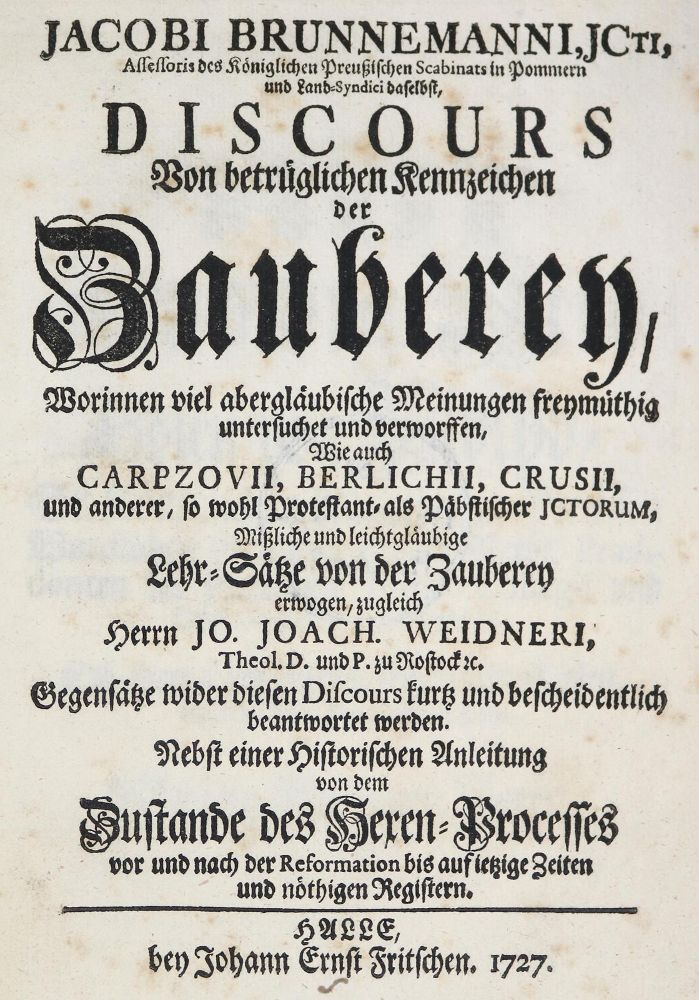 JACOBI BRUNNEMANNI, JCTI,
Assessoris des Königlichen Preußischen Scabinats in Pommern
und Land-Syndici daselbst,
DISCOURS
Von betrüglichen Kennzeichen
der
Zauberey,
Worinnen viel abergläubische Meinungen freymüthig
untersuchet und verworffen,
Wie auch
CARPZOVII, BERLICHII, CRUSII,
und anderer, so wohl Protestant- als Päbstischer JCTORUM,
Mißliche und leichtgläubige
Lehr-Sätze von der Zauberey
erwogen, zugleich
Herrn JO. JOACH. WEIDNERI,
Theol. D. und P. zu Rostock ꝛc.
Gegensätze wider diesen Discours kurtz und bescheidentlich
beantwortet werden.
Nebst einer Historischen Anleitung
von dem
Zustande des Hexen-Processes
vor und nach der Reformation bis auf ietzige Zeiten
und nöthigen Registern.
HALLE,
bey Johann Ernst Fritschen. 1727.